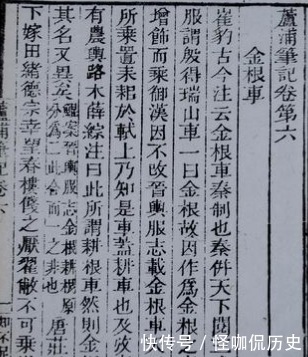 蘆浦筆記卷第六
金根車
崔豹古今注云金根車秦制也秦併天下閱
服謂殷得瑞山車一曰金根故因作爲金根之
增飾而乘御漢因不改晉輿服志載金根車
所乘置耒耜於軾上乃知是車蓋耕車也及攷
有農輿路木薛綜注曰此所謂耕根車然則金
其名又異矣
下嫁田緒德宗幸望春樓餞之厭翟敝不可乘
快传号/怪咖侃历史